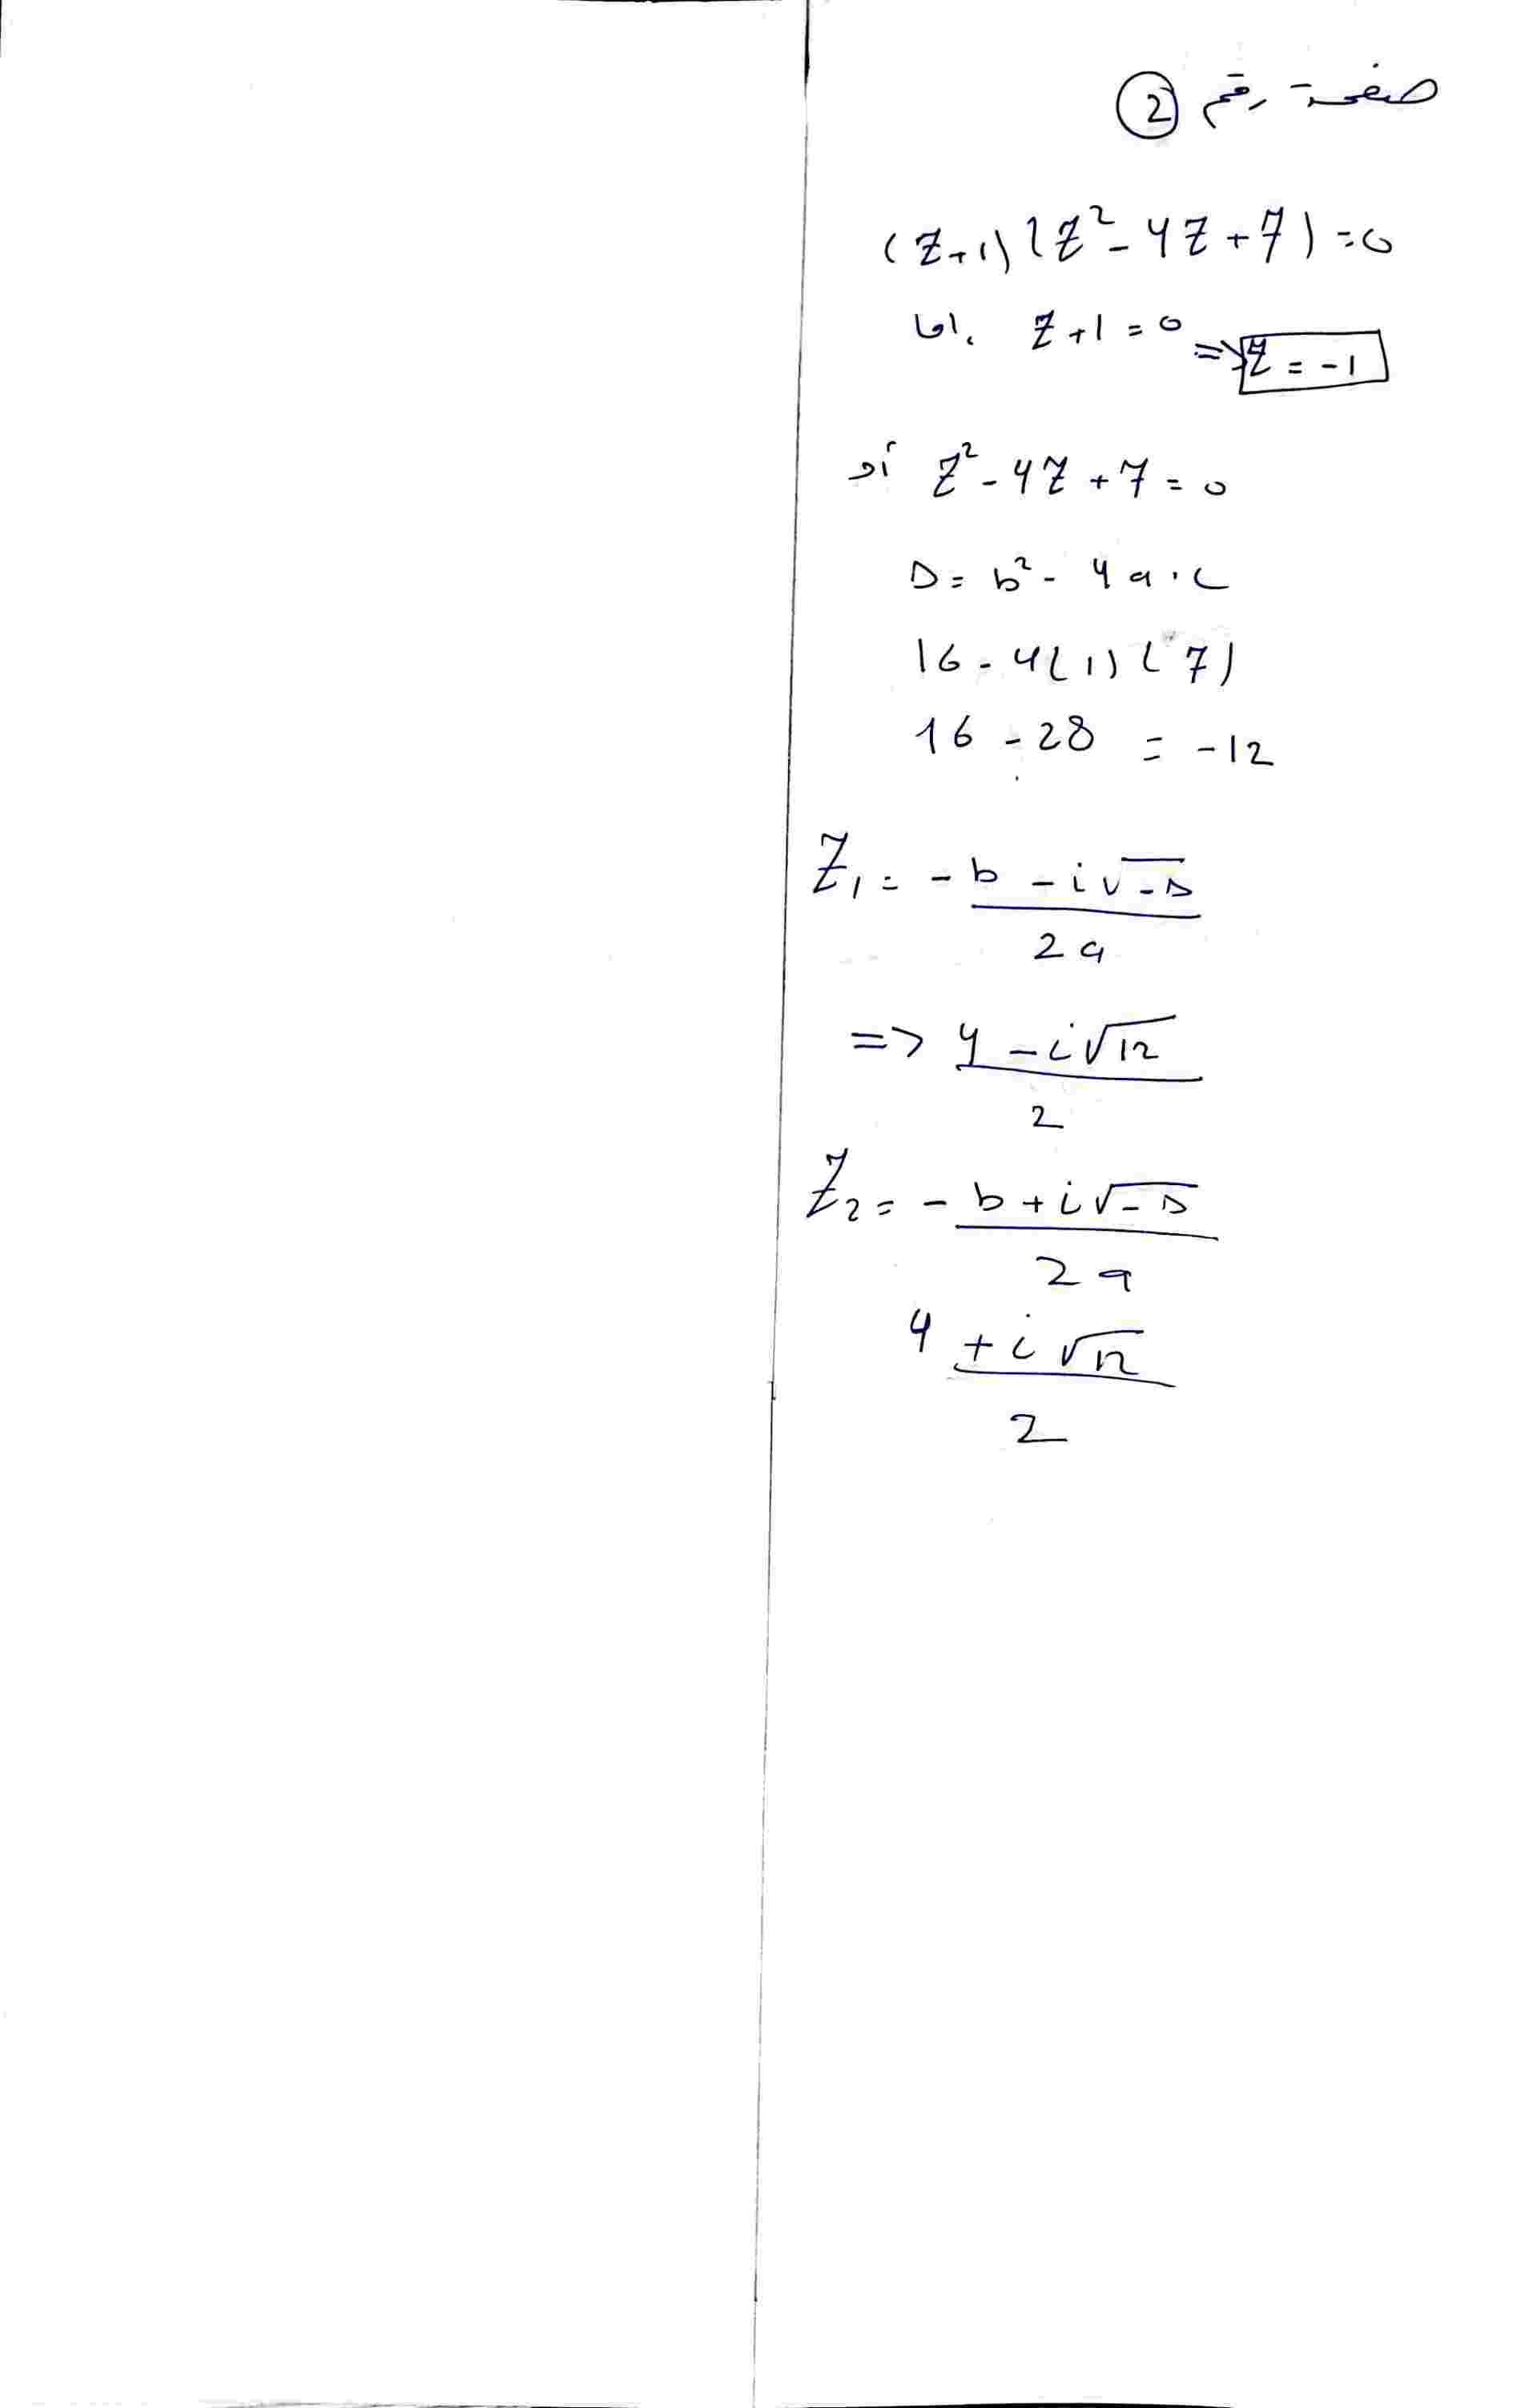 صفحة رقم 2
(Z+1)(Z²-4Z+7)=0
اما Z+1=0 => Z=-1
أو Z²-4Z+7=0
D=b²-4a.c
16-4(1)(7)
16-28=-12
Z₁=-b-i√-D
2a
=> 4-i√12
2
Z₂=-b+i√-D
2a
4+i√12
2